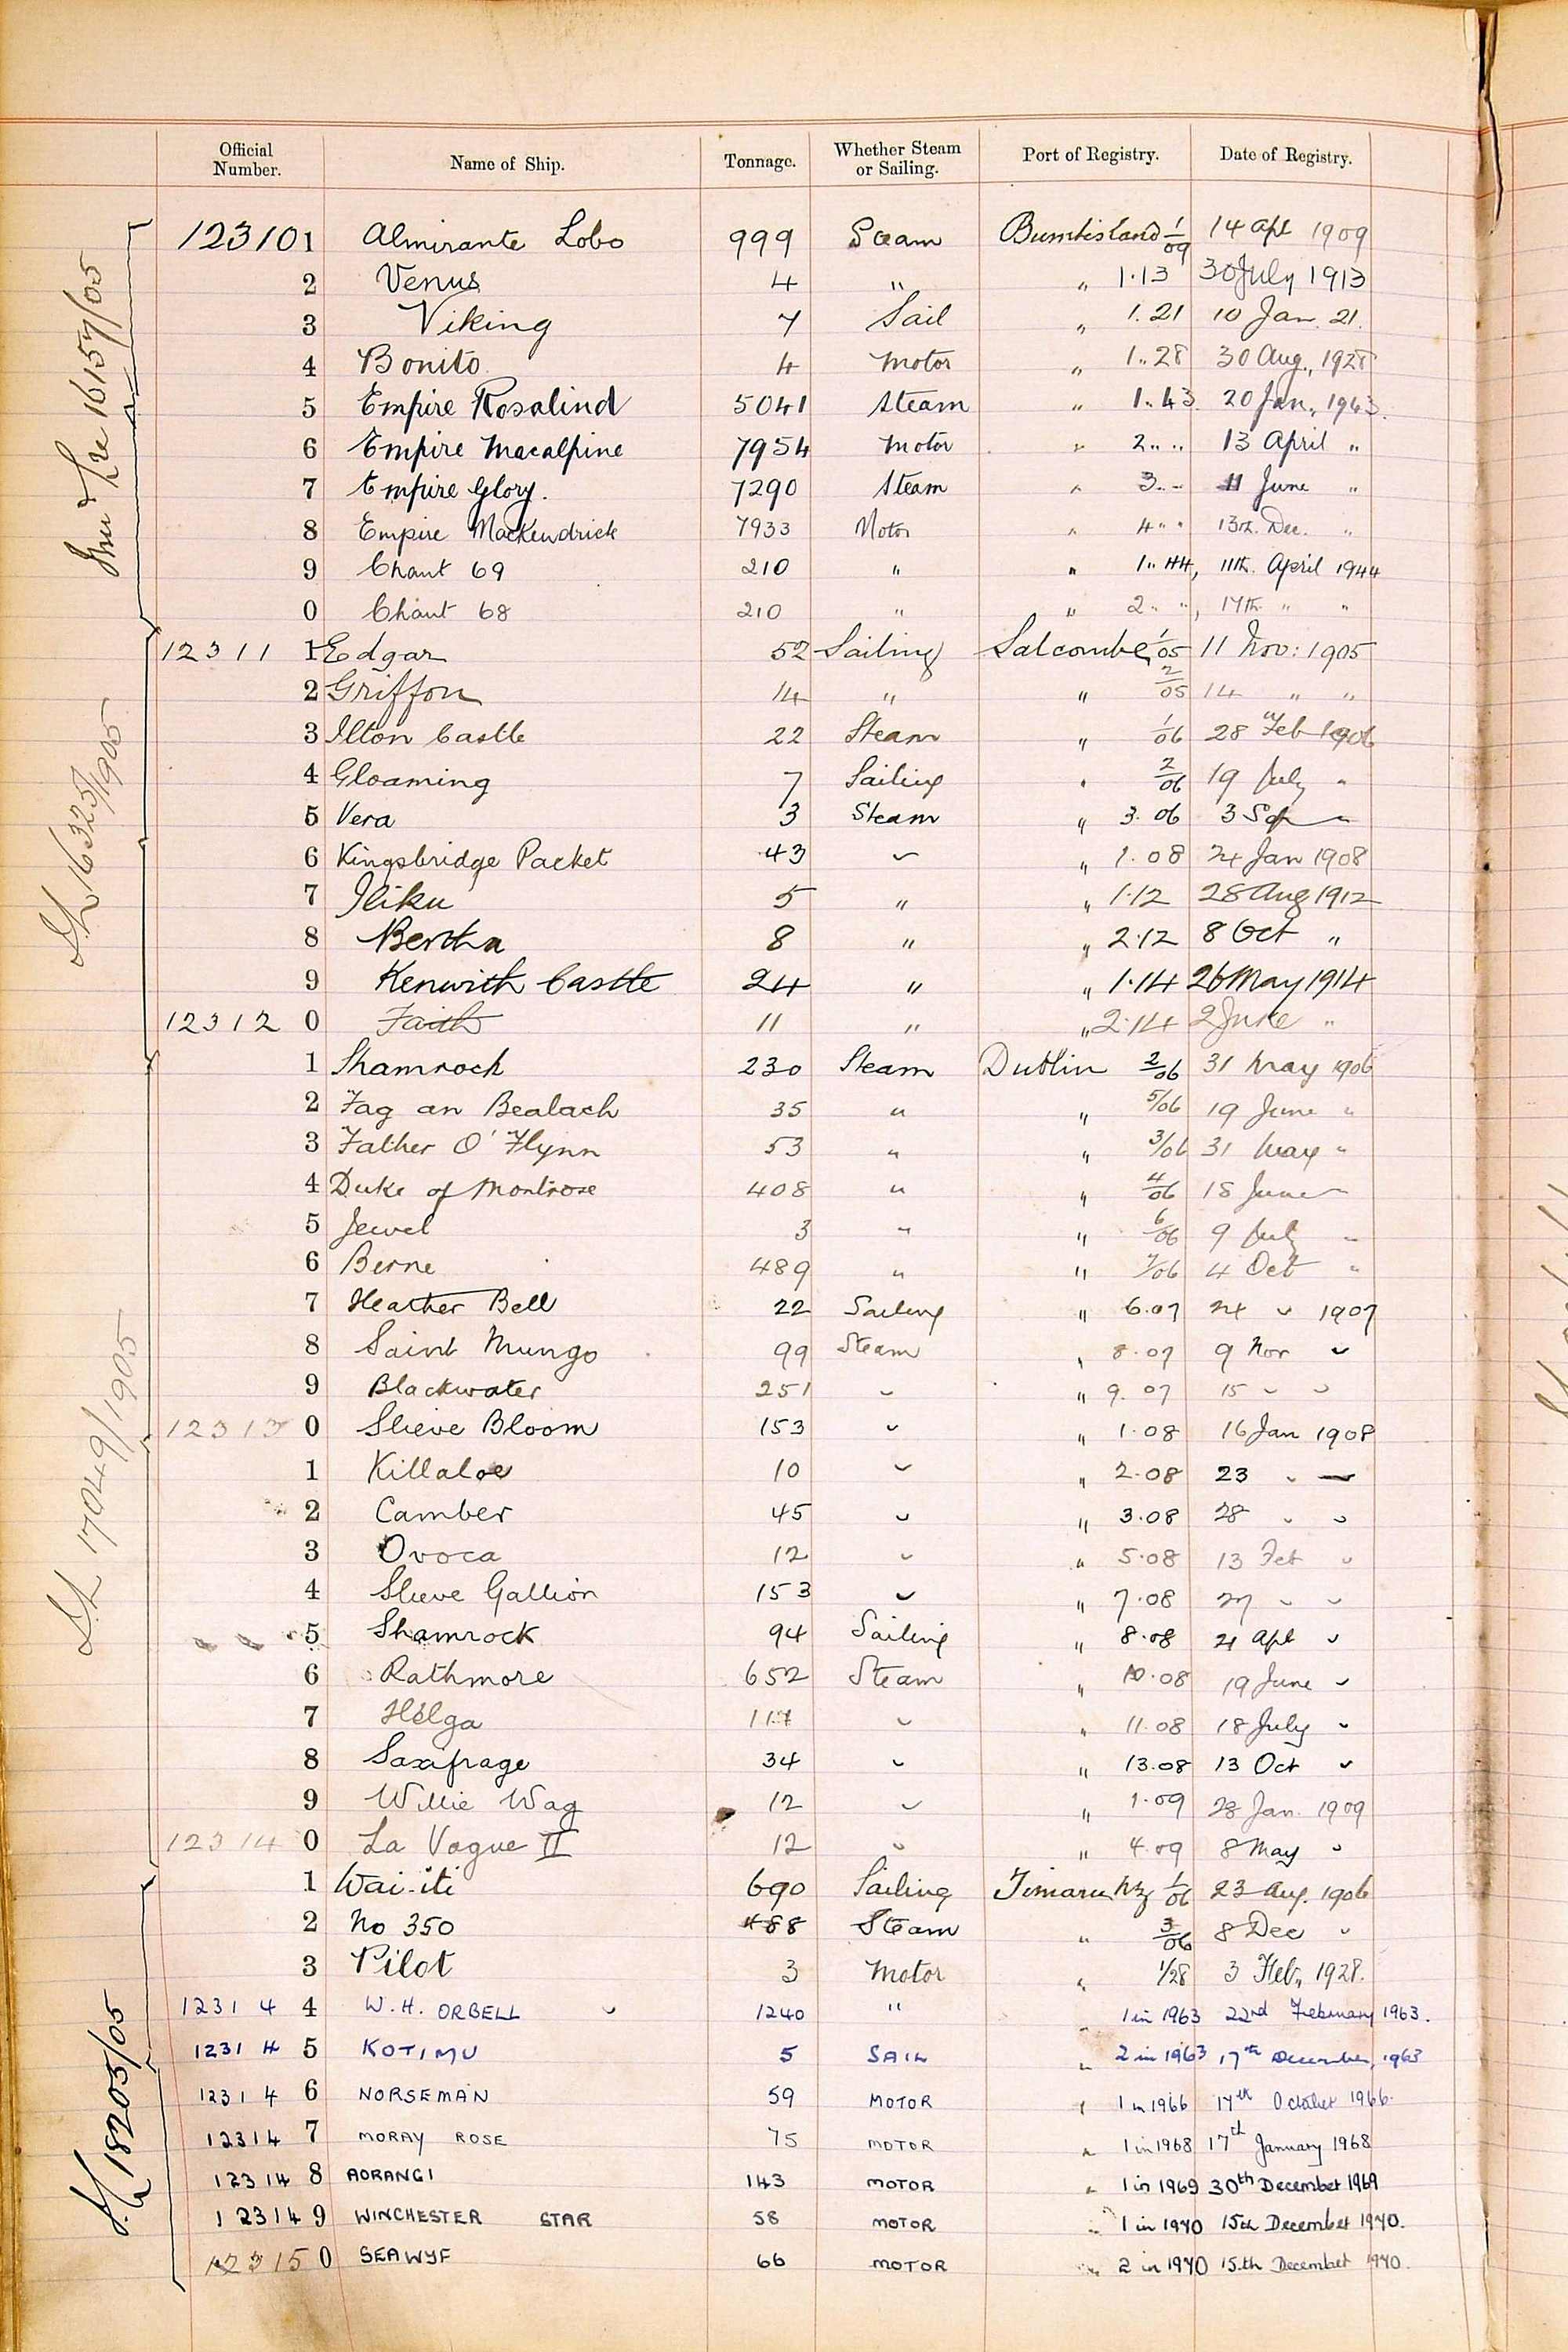 Official Number. Name of Ship. Tonnage. Whether Steam or Sailing. Port of Registry. Date of Registry.
123101 Almirante Lobo 999 Steam Burntisland 1/09 14 Apl 1909
2 Venus 4 " " 1.13 30 July 1913
3 Viking 7 Sail " 1.21 10 Jan. 21.
4 Bonito 4 Motor " 1..28 30 Aug., 1928
5 Empire Rosalind 5041 Steam " 1..43 20 Jan., 1943.
6 Empire Macalpine 7954 Motor " 2.. .. 13 April "
7 Empire Glory. 7290 Steam " 3.. .. 11 June "
8 Empire Mackendrick 7933 Motor " 4 " " 13th. Dec. "
9 Chant 69 210 " " 1..44, 11th. April 1944
0 Chant 68 210 " " 2.. ", 17th " "
12311 1 Edgar 52 Sailing Salcombe 1/05 11 Nov: 1905
2 Griffon 14 " " 2/05 14 " "
3 Ilton Castle 22 Steam " 1/06 28 Feb 1906
4 Gloaming 7 Sailing " 2/06 19 July "
5 Vera 3 Steam " 3.06 3 Sep "
6 Kingsbridge Packet 43 " " 1.08 24 Jan 1908
7 Iliku 5 " " 1.12 28 Aug 1912
8 Bertha 8 " " 2.12 8 Oct "
9 Kenwith Castle 24 " " 1.14 26 May 1914
12312 0 Faith 11 " " 2.14 2 June "
1 Shamrock 230 Steam Dublin 2/06 31 May 1906
2 Fag an Bealach 35 " " 5/06 19 June "
3 Father O'Flynn 53 " " 3/06 31 May "
4 Duke of Montrose 408 " " 4/06 18 June "
5 Jewel 3 " " 6/06 9 July "
6 Berne 489 " " 7/06 4 Oct "
7 Heather Bell 22 Sailing " 6.07 24 " 1907
8 Saint Mungo 99 Steam " 8.07 9 Nov "
9 Blackwater 251 " " 9.07 15 " "
12313 0 Slieve Bloom 153 " " 1.08 16 Jan 1908
1 Killaloe 10 " " 2.08 23 " "
2 Camber 45 " " 3.08 28 " "
3 Ovoca 12 " " 5.08 13 Feb "
4 Slieve Gallion 153 " " 7.08 27 " "
5 Shamrock 94 Sailing " 8.08 21 Apl "
6 Rathmore 652 Steam " 10.08 19 June "
7 Helga " " 11.08 18 July "
8 Saxifrage 34 " " 13.08 13 Oct "
9 Willie Wag 12 " " 1.09 28 Jan. 1909
12314 0 La Vague II 12 " " 4.09 8 May "
1 Wai-iti 690 Sailing Timaru NZ 1/06 23 Aug. 1906
2 No 350 488 Steam " 3/06 8 Dec "
3 Pilot 3 Motor " 1/28 3 Feb., 1928.
1231 4 4 W.H. ORBELL 1240 " " 1 in 1963 22nd February 1963.
1231 4 5 KOTIMU 5 SAIL " 2 in 1963 17th December, 1963
1231 4 6 NORSEMAN 59 MOTOR " 1 in 1966 17th October 1966.
12314 7 MORAY ROSE 75 MOTOR " 1 in 1968 17th January 1968
12314 8 AORANGI 143 MOTOR " 1 in 1969 30th December 1969
12314 9 WINCHESTER STAR 58 MOTOR " 1 in 1970 15th December 1970.
12315 0 SEAWYF 66 MOTOR " 2 in 1970 15th December 1970.
16157/05
16325/1905
17049/1905
18205/05